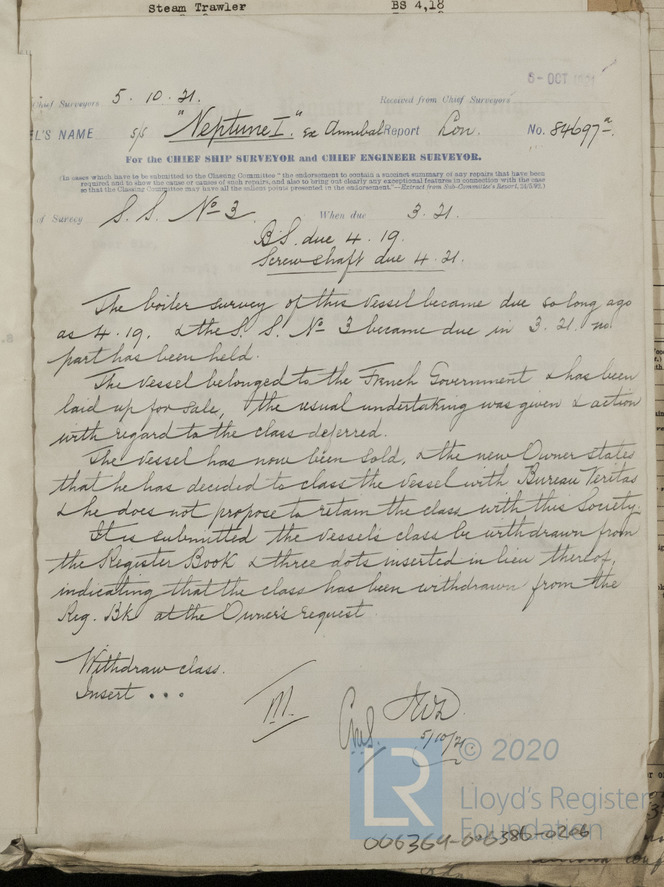 Steam Trawler BS 4,18
5-OCT 1921
Chief Surveyors 5.10.21. Received from Chief Surveyors
L'S NAME s/s "Neptune I." ex Annibal Report Lon. No. 84697a
For the CHIEF SHIP SURVEYOR and CHIEF ENGINEER SURVEYOR.
(In cases which have to be submitted to the Classing Committee "the endorsement to contain a succinct summary of any repairs that have been
required and to show the cause or causes of such repairs, and also to bring out clearly any exceptional features in connection with the case
so that the Classing Committee may have all the salient points presented in the endorsement."—Extract from Sub-Committee's Report,
of Survey S.S. No 3 When due 3.21.
B.S. due 4.19.
Screwshaft due 4.21.
The boiler survey of this vessel became due so long ago
as 4.19. & the S.S. No 3 became due in 3.21. no
part has been held.
The vessel belonged to the French Government & has been
laid up for sale, & the usual undertaking was given & action
with regard to the class deferred.
The vessel has now been sold, & the new Owner states
that he has decided to class the vessel with Bureau Veritas
& he does not propose to retain the class with this Society.
It is submitted the vessel's class be withdrawn from
the Register Book & three dots inserted in lieu thereof,
indicating that the class has been withdrawn from the
Reg. Bk. at the Owner's request
Withdraw class.
Insert ...
5/10/21
© 2020
LR
Lloyd's Register
Foundation
006364-006386-0206